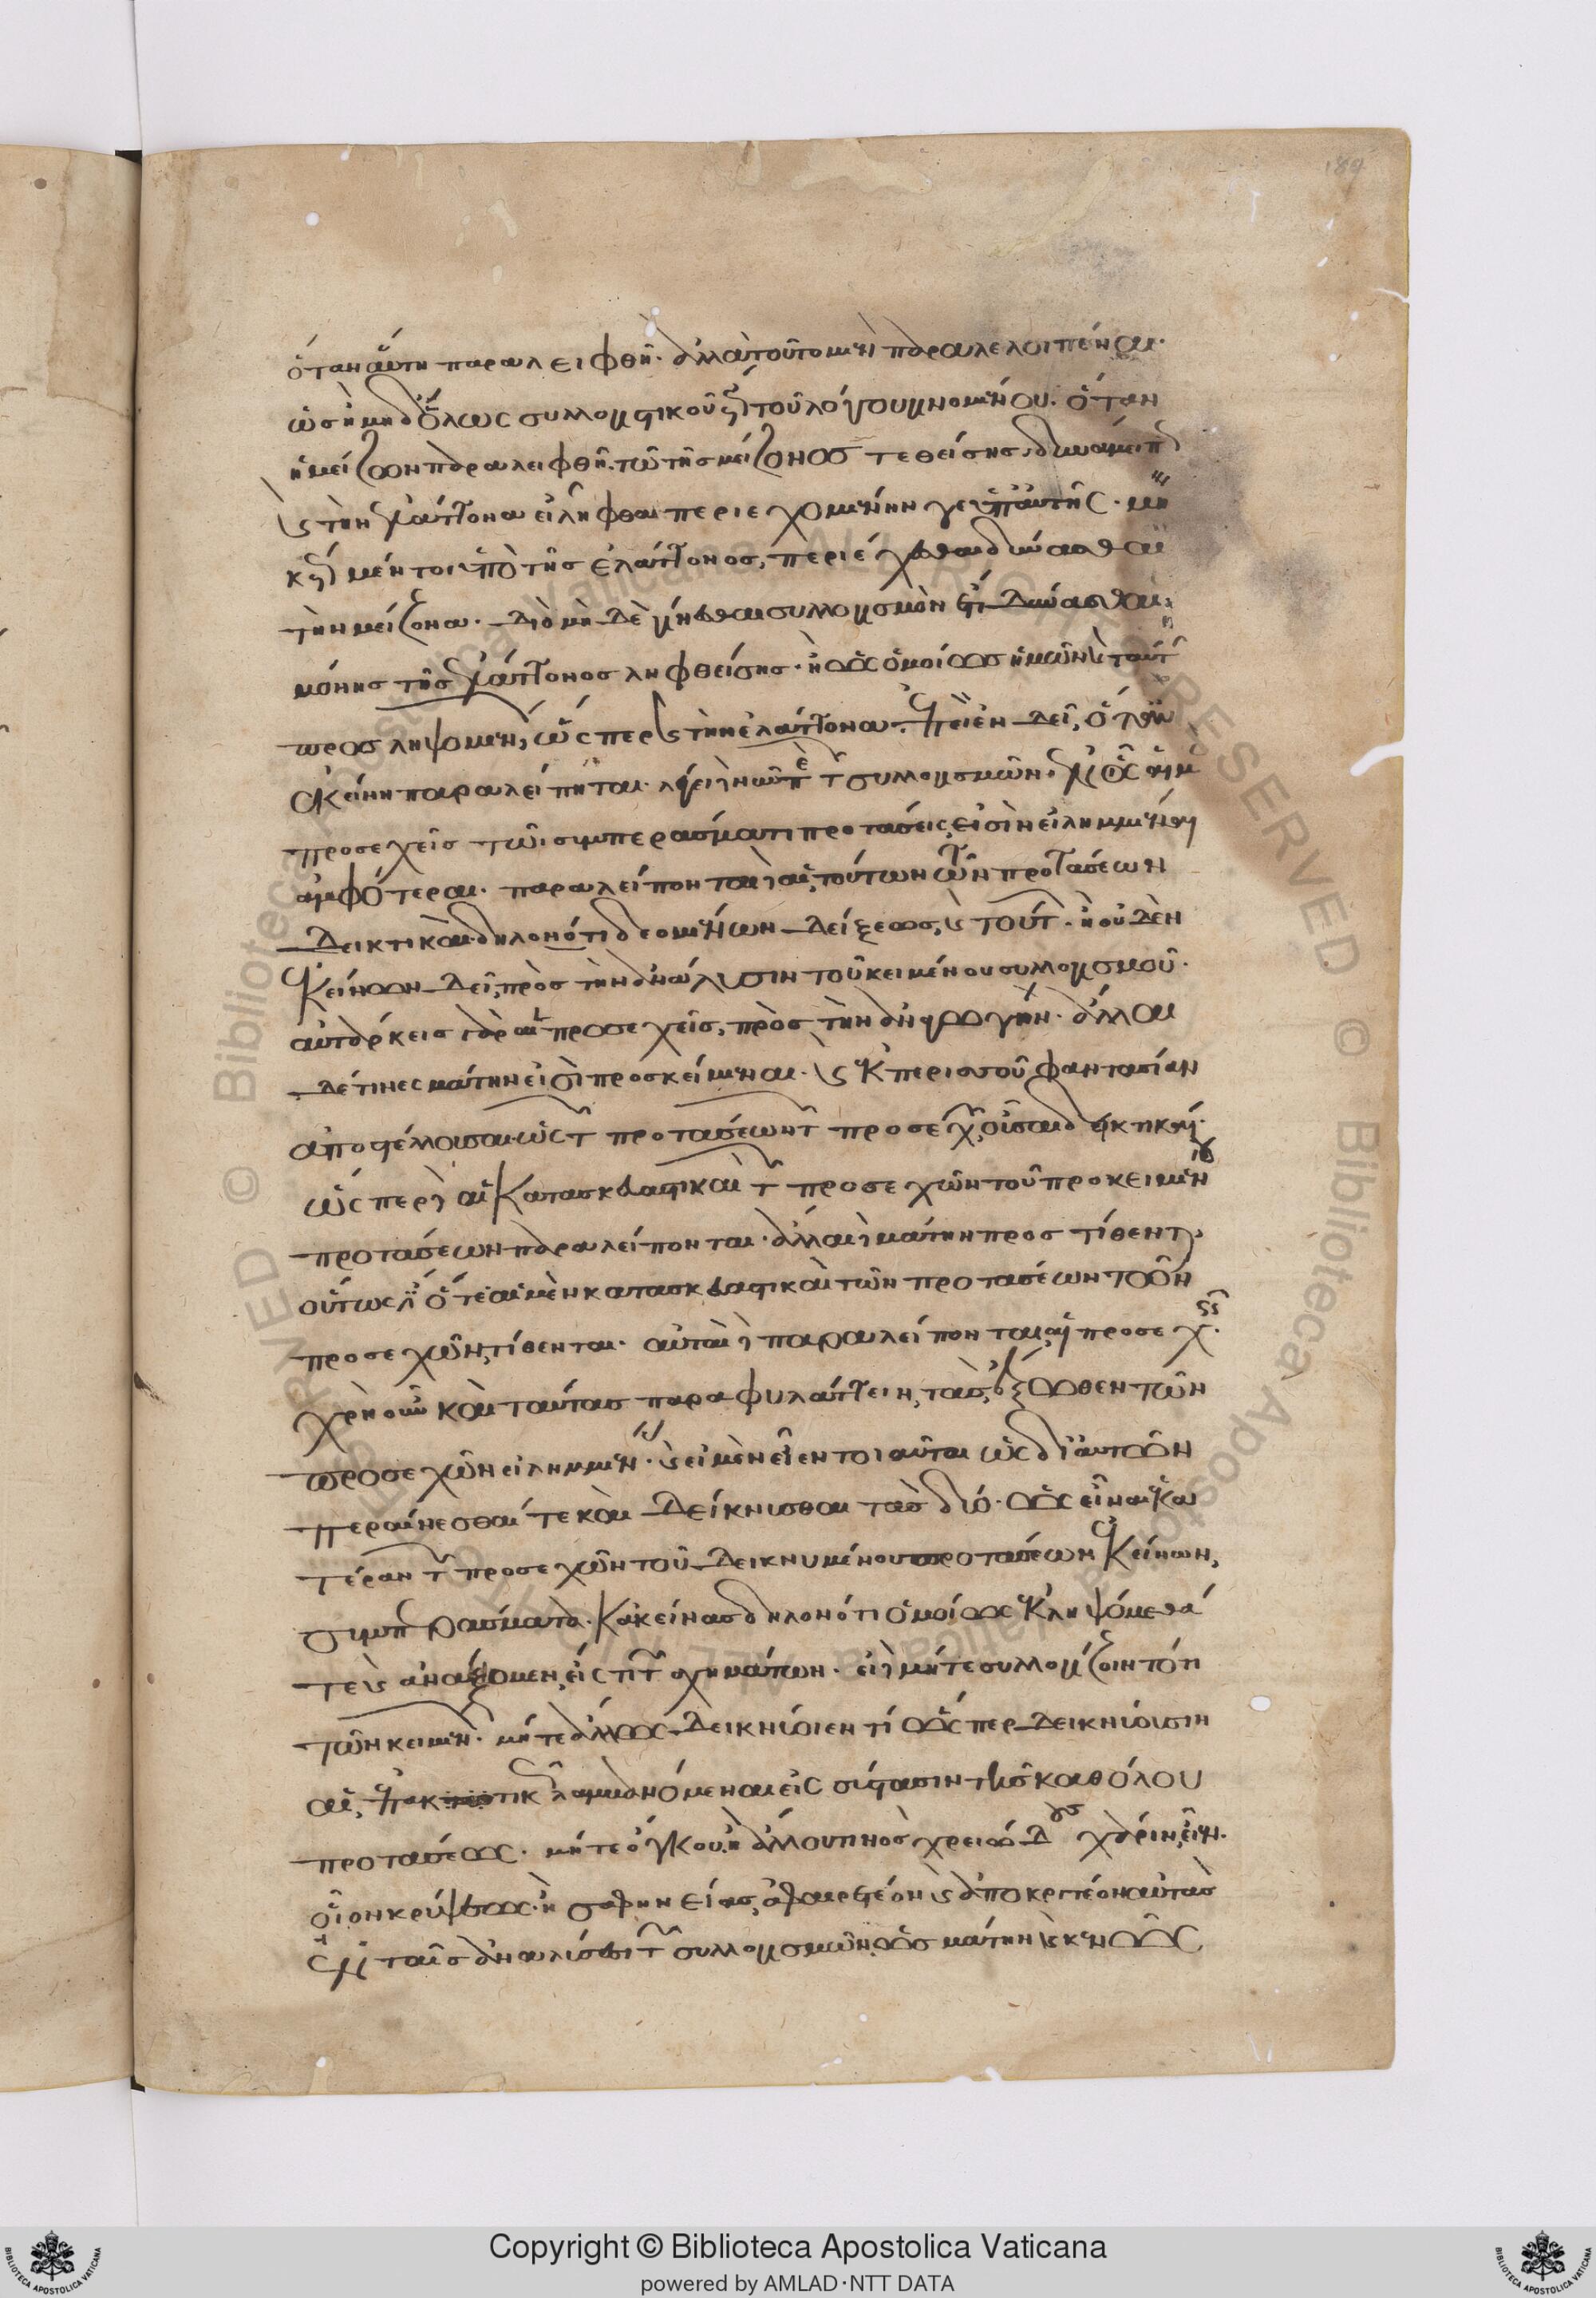 184
ὅταν αὕτη παραλειφθῆ· ἀλλὰ τοῦτο μὲν παραλελοιπέναι·
ὡσὴ μηδ' ὅλως συλλογιστικοῦ τοῦ λόγου γινομένου· ὅταν
ἡ μείζων παραλειφθῆ. τῶ τῆς μείζονος τεθείσης, δυνάμει
καὶ τὴν ἐλάττονα εἰλῆφθαι περιεχομένην γε ὑπ' αὐτῆς· μη
μέντοι ὑπὸ τῆς ἐλάττονος, περιέχεσθαι δύνασθαι
τὴν μείζονα· διὸ μὴ δὲ γίνεσθαι συλλογισμὸν ἔτι δύνασθαι
μόνης τῆς ἐλάττονος ληφθείσης· ἢ ὡς ὁμοίως ἡμῶν καὶ ταύτ
προσληψομένων, ὥσπερ καὶ τὴν ἐλάττονα. ἐπεὶ ἐν δεῖ, ὅταν
ἐκείνη παραλείπηται· λέγει νῦν περὶ τῶν συλλογισμῶν, ἐν οἷς αἱ μὲν
προσεχεῖς τῶι συμπεράσματι προτάσεις, εἰσὶν εἰλημμέναι
ἀμφότεραι· παραλείπονται δὲ αἱ τούτων τῶν προτάσεων
δεικτικαὶ. δηλονότι δεομένων δείξεως, καὶ τούτων· ἢ οὐδὲν
ἐκείνων δεῖ, πρὸς τὴν ἀνάλυσιν τοῦ κειμένου συλλογισμοῦ·
αὐτάρκεις γὰρ αἱ προσεχεῖς, πρὸς τὴν ἀναγωγήν· ἄλλαι
δέ τινες μάτην εἰσὶ προσκείμεναι· καὶ ἐκ περισσοῦ φαντασίαν
ἀποστέλλουσαι. ὡς τῶν προτάσεων τῶν προσεχῶν, οὖσαι δεικτικαί·
ὥσπερ δὲ αἱ κατασκευαστικαὶ τῶν προσεχῶν τοῦ προκειμένου
προτάσεων παραλείπονται· ἀλλαι δὲ μάτην προστίθενται,
οὕτως ἔσθ' ὅτε αἱ μὲν κατασκευαστικαὶ τῶν προτάσεων τῶν
προσεχῶν, τίθενται· αὐταὶ δὲ παραλείπονται, αἱ προσεχεῖς.
χρὴ οὖν καὶ ταύτας παραφυλάττειν, τὰς ἔξωθεν τῶν
προσεχῶν εἰλημμένας· καὶ εἰ μὲν εἶεν τοιαῦται ὡς δι' αὐτῶν
περαίνεσθαί τε καὶ δείκνυσθαι τὰς δύο· ὡς εἶναι ἑκα
τέραν τῶν προσεχῶν τοῦ δεικνυμένου προτάσεων ἐκείνων,
συμπεράσματα. κἀκείνας δηλονότι ὁμοίως ἐκληψόμεθά
τε καὶ ἀνάξομεν, εἴς τι τῶν σχημάτων· εἰ δὲ μήτε συλλογίζοιντό τι
τῶν κειμένων· μήτε ἄλλως δεικνύοιέν τι ὥσπερ δεικνύουσιν
αἱ, ἐπακτικῶς λαμβανόμεναι εἰς σύστασιν τῆς καθόλου
προτάσεως· μήτε ὄγκου, ἢ ἄλλου τινὸς χρειώδους χάριν, εἶεν.
οἷον κρύψεως· ἢ σαφηνείας, ἀφαιρετέον καὶ ἀποκριτέον αὐτὰς
ἐν ταῖς ἀναλύσεσι τῶν συλλογισμῶν, ὡς μάτην καὶ κενῶς
Copyright © Biblioteca Apostolica Vaticana
powered by AMLAD·NTT DATA